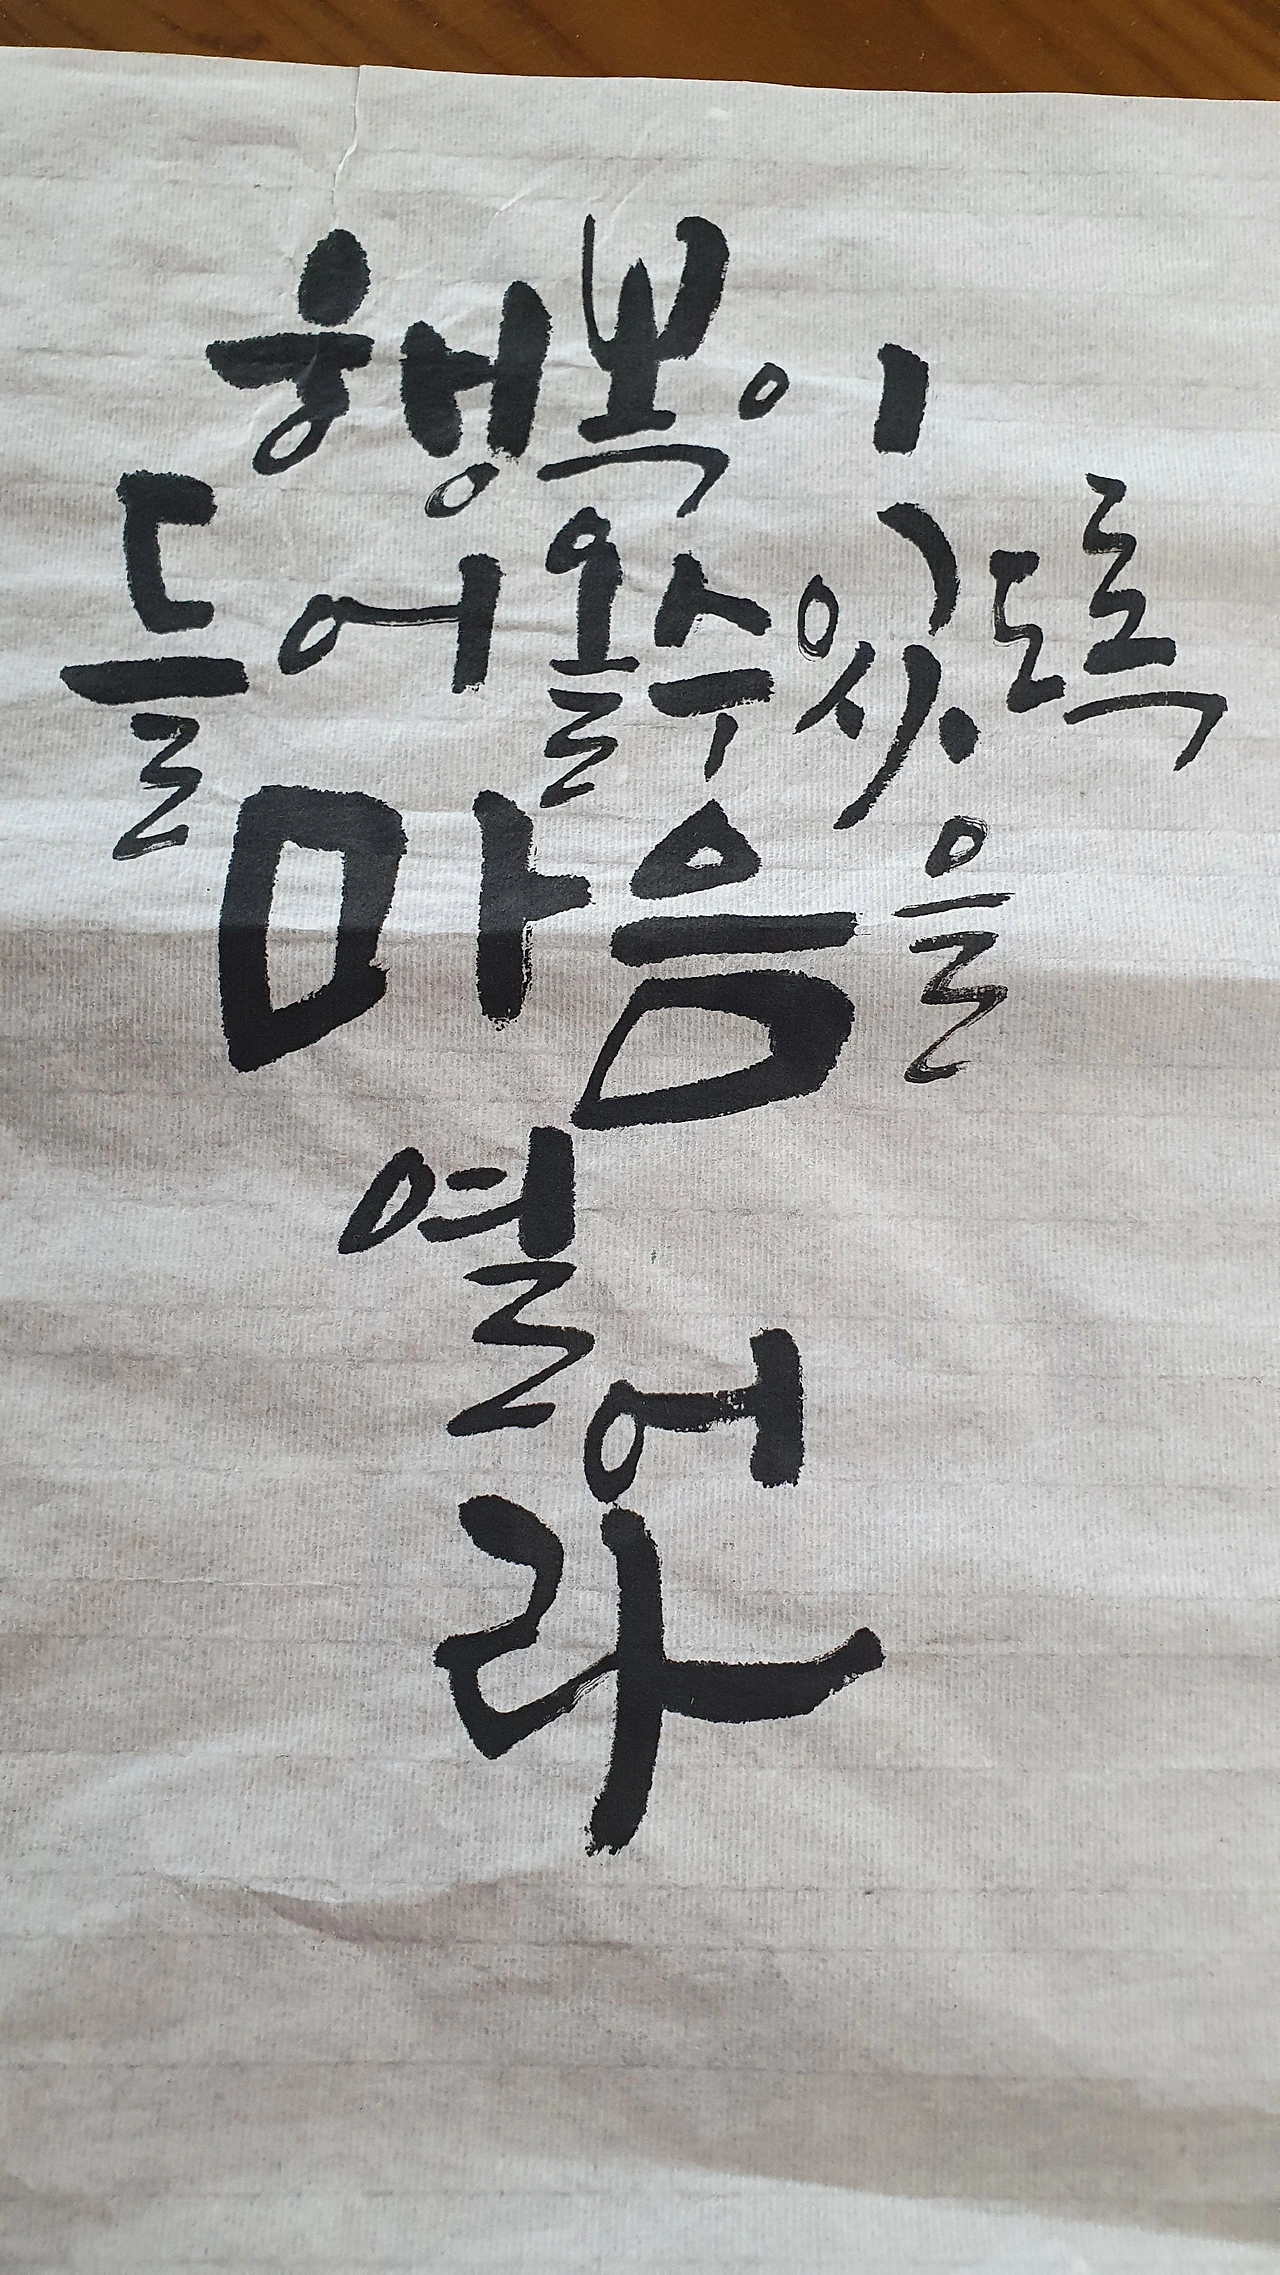 행복이
들어올수있도록
마음을
열어
라